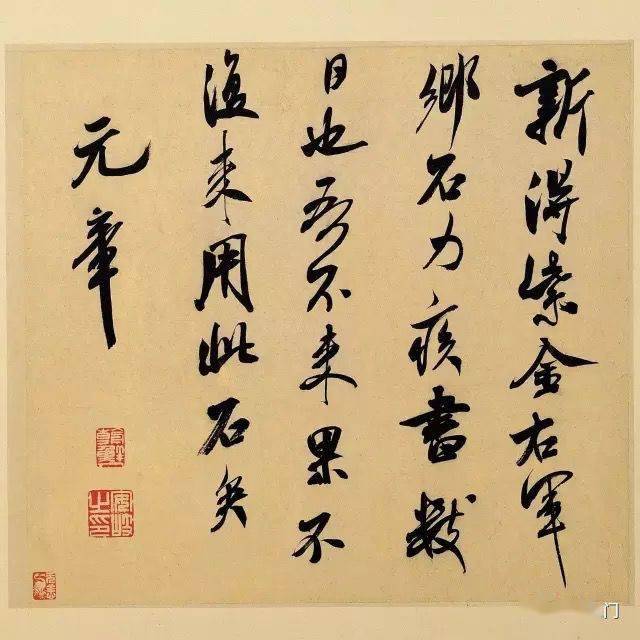 新得紫金右軍
鄉石力疾書數
日也吾不来果不
復来用此石矣
元章
门